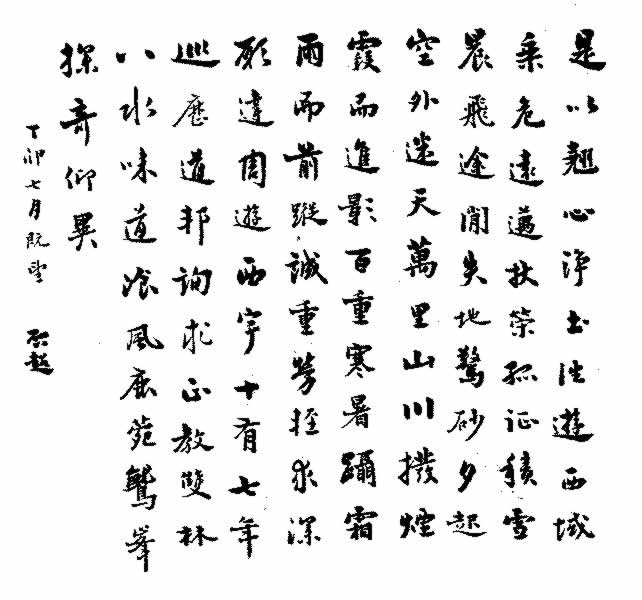 是以翹心淨土往遊西域
乘危遠邁杖策孤征積雪
晨飛途閒失地驚砂夕起
空外迷天萬里山川撥煙
霞而進影百重寒暑躡霜
雨而前蹤誠重勞輕求深
願達周遊西宇十有七年
巡歷道邦詢求正教雙林
八水味道飡風鹿苑鷲峯
探奇仰異
丁卯七月既望